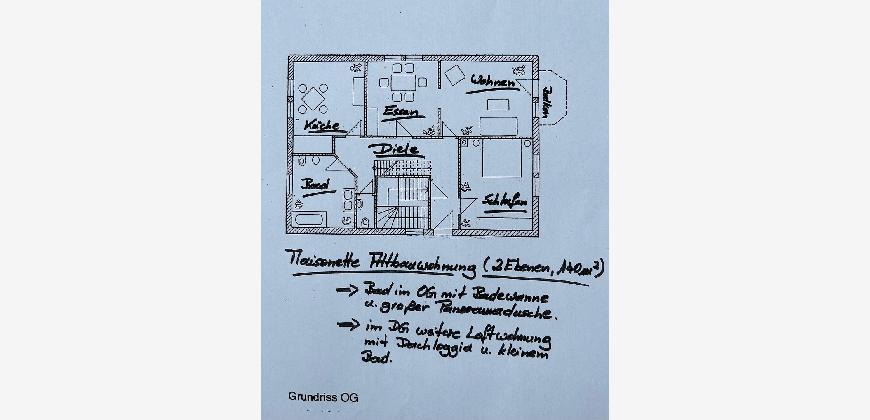 Wohnen
Essen
Küche
Balkon
Diele
Bad
Schlafen
Maisonette Altbauwohnung (2 Ebenen, 140 m²)
→ Bad im OG mit Badewanne
u. großer Panoramadusche.
→ im DG weitere Loftwohnung
mit Dachloggia u. kleinem
Bad.
Grundriss OG